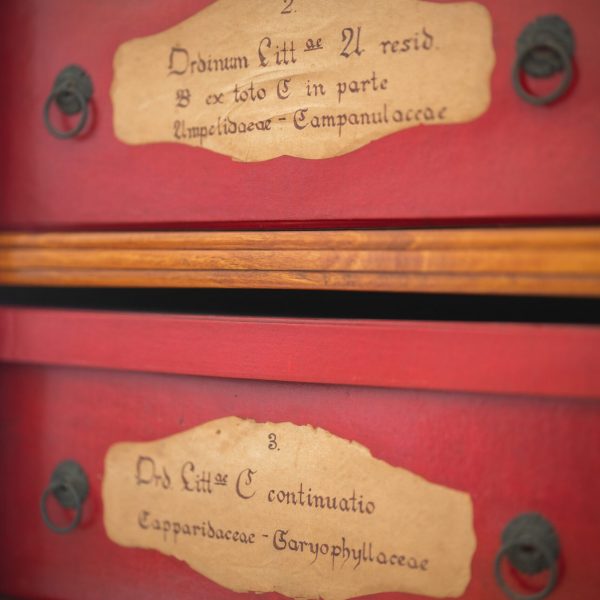 2.
Ordinum Litt ae A resid.
B ex toto C in parte
Ampelidaeae - Campanulaceae
3.
Ord. Litt ae C continuatio
Capparidaceae - Caryophyllaceae